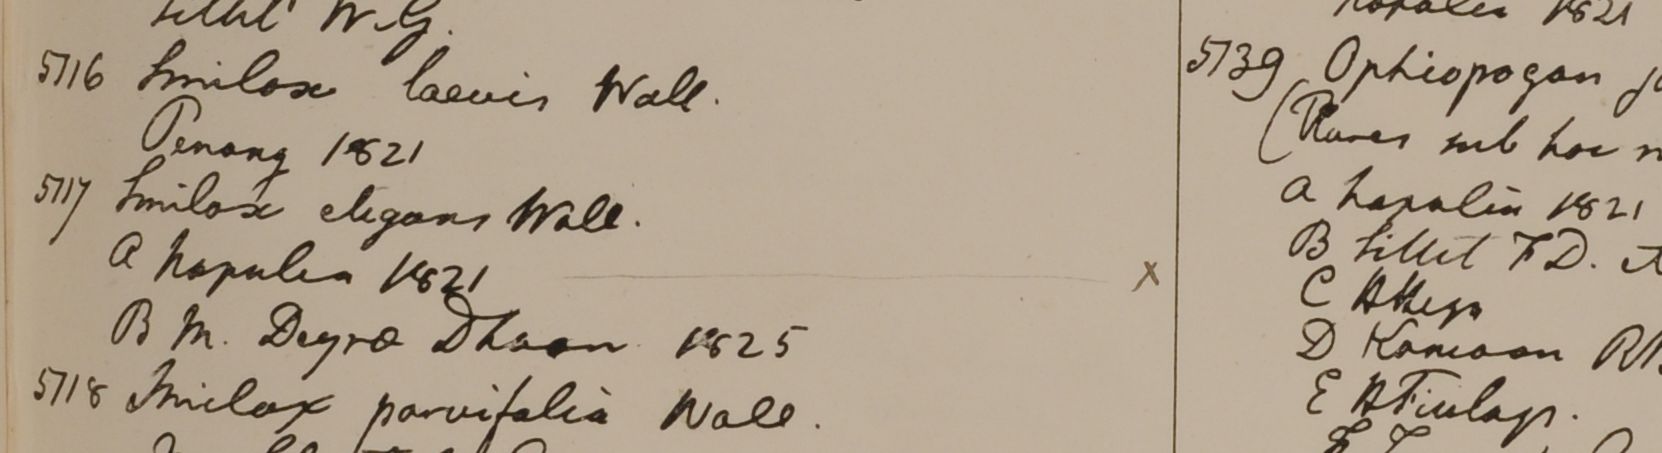 Sillet W.G.
5716 Smilax laevis Wall.
Penang 1821
5717 Smilax elegans Wall.
A Napalia 1821
B M. Deyra Dhoon 1825
5718 Smilax parvifolia Wall.
Napalia 1821
5739 Ophiopogon
(Plures sub hoc
a Napalia 1821
B Sillet F.D.
C
D Kamaon
E H Finlays.